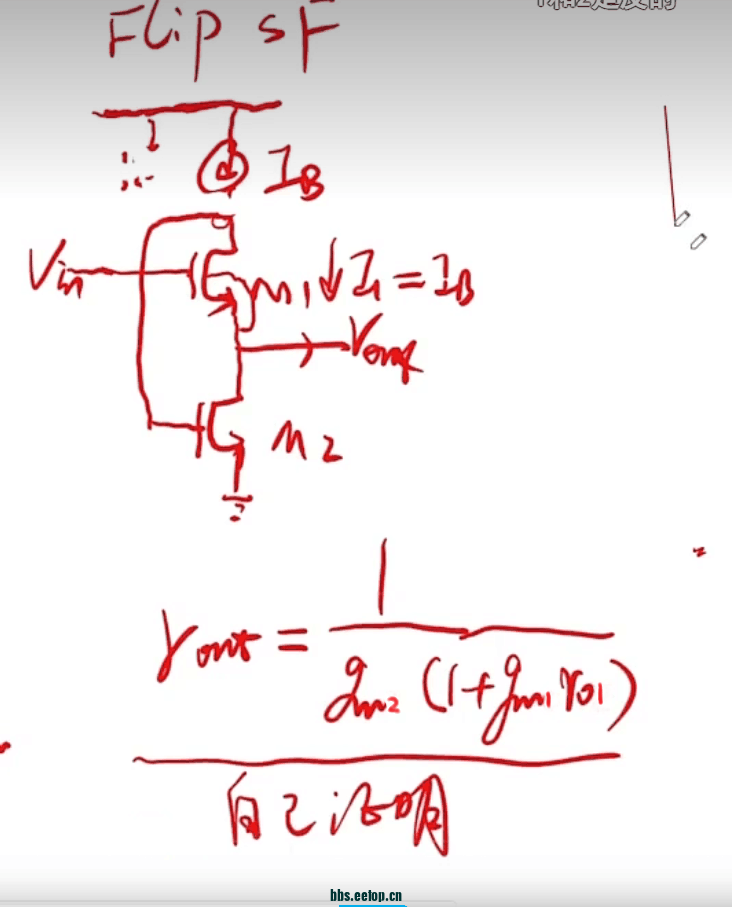 Flip SF
I_B
Vin
M1 ↓ I1 = I_B
Vout
M2
rout = 1 / (gm2 (1 + gm1 ro1))
自己证明
bbs.eetop.cn